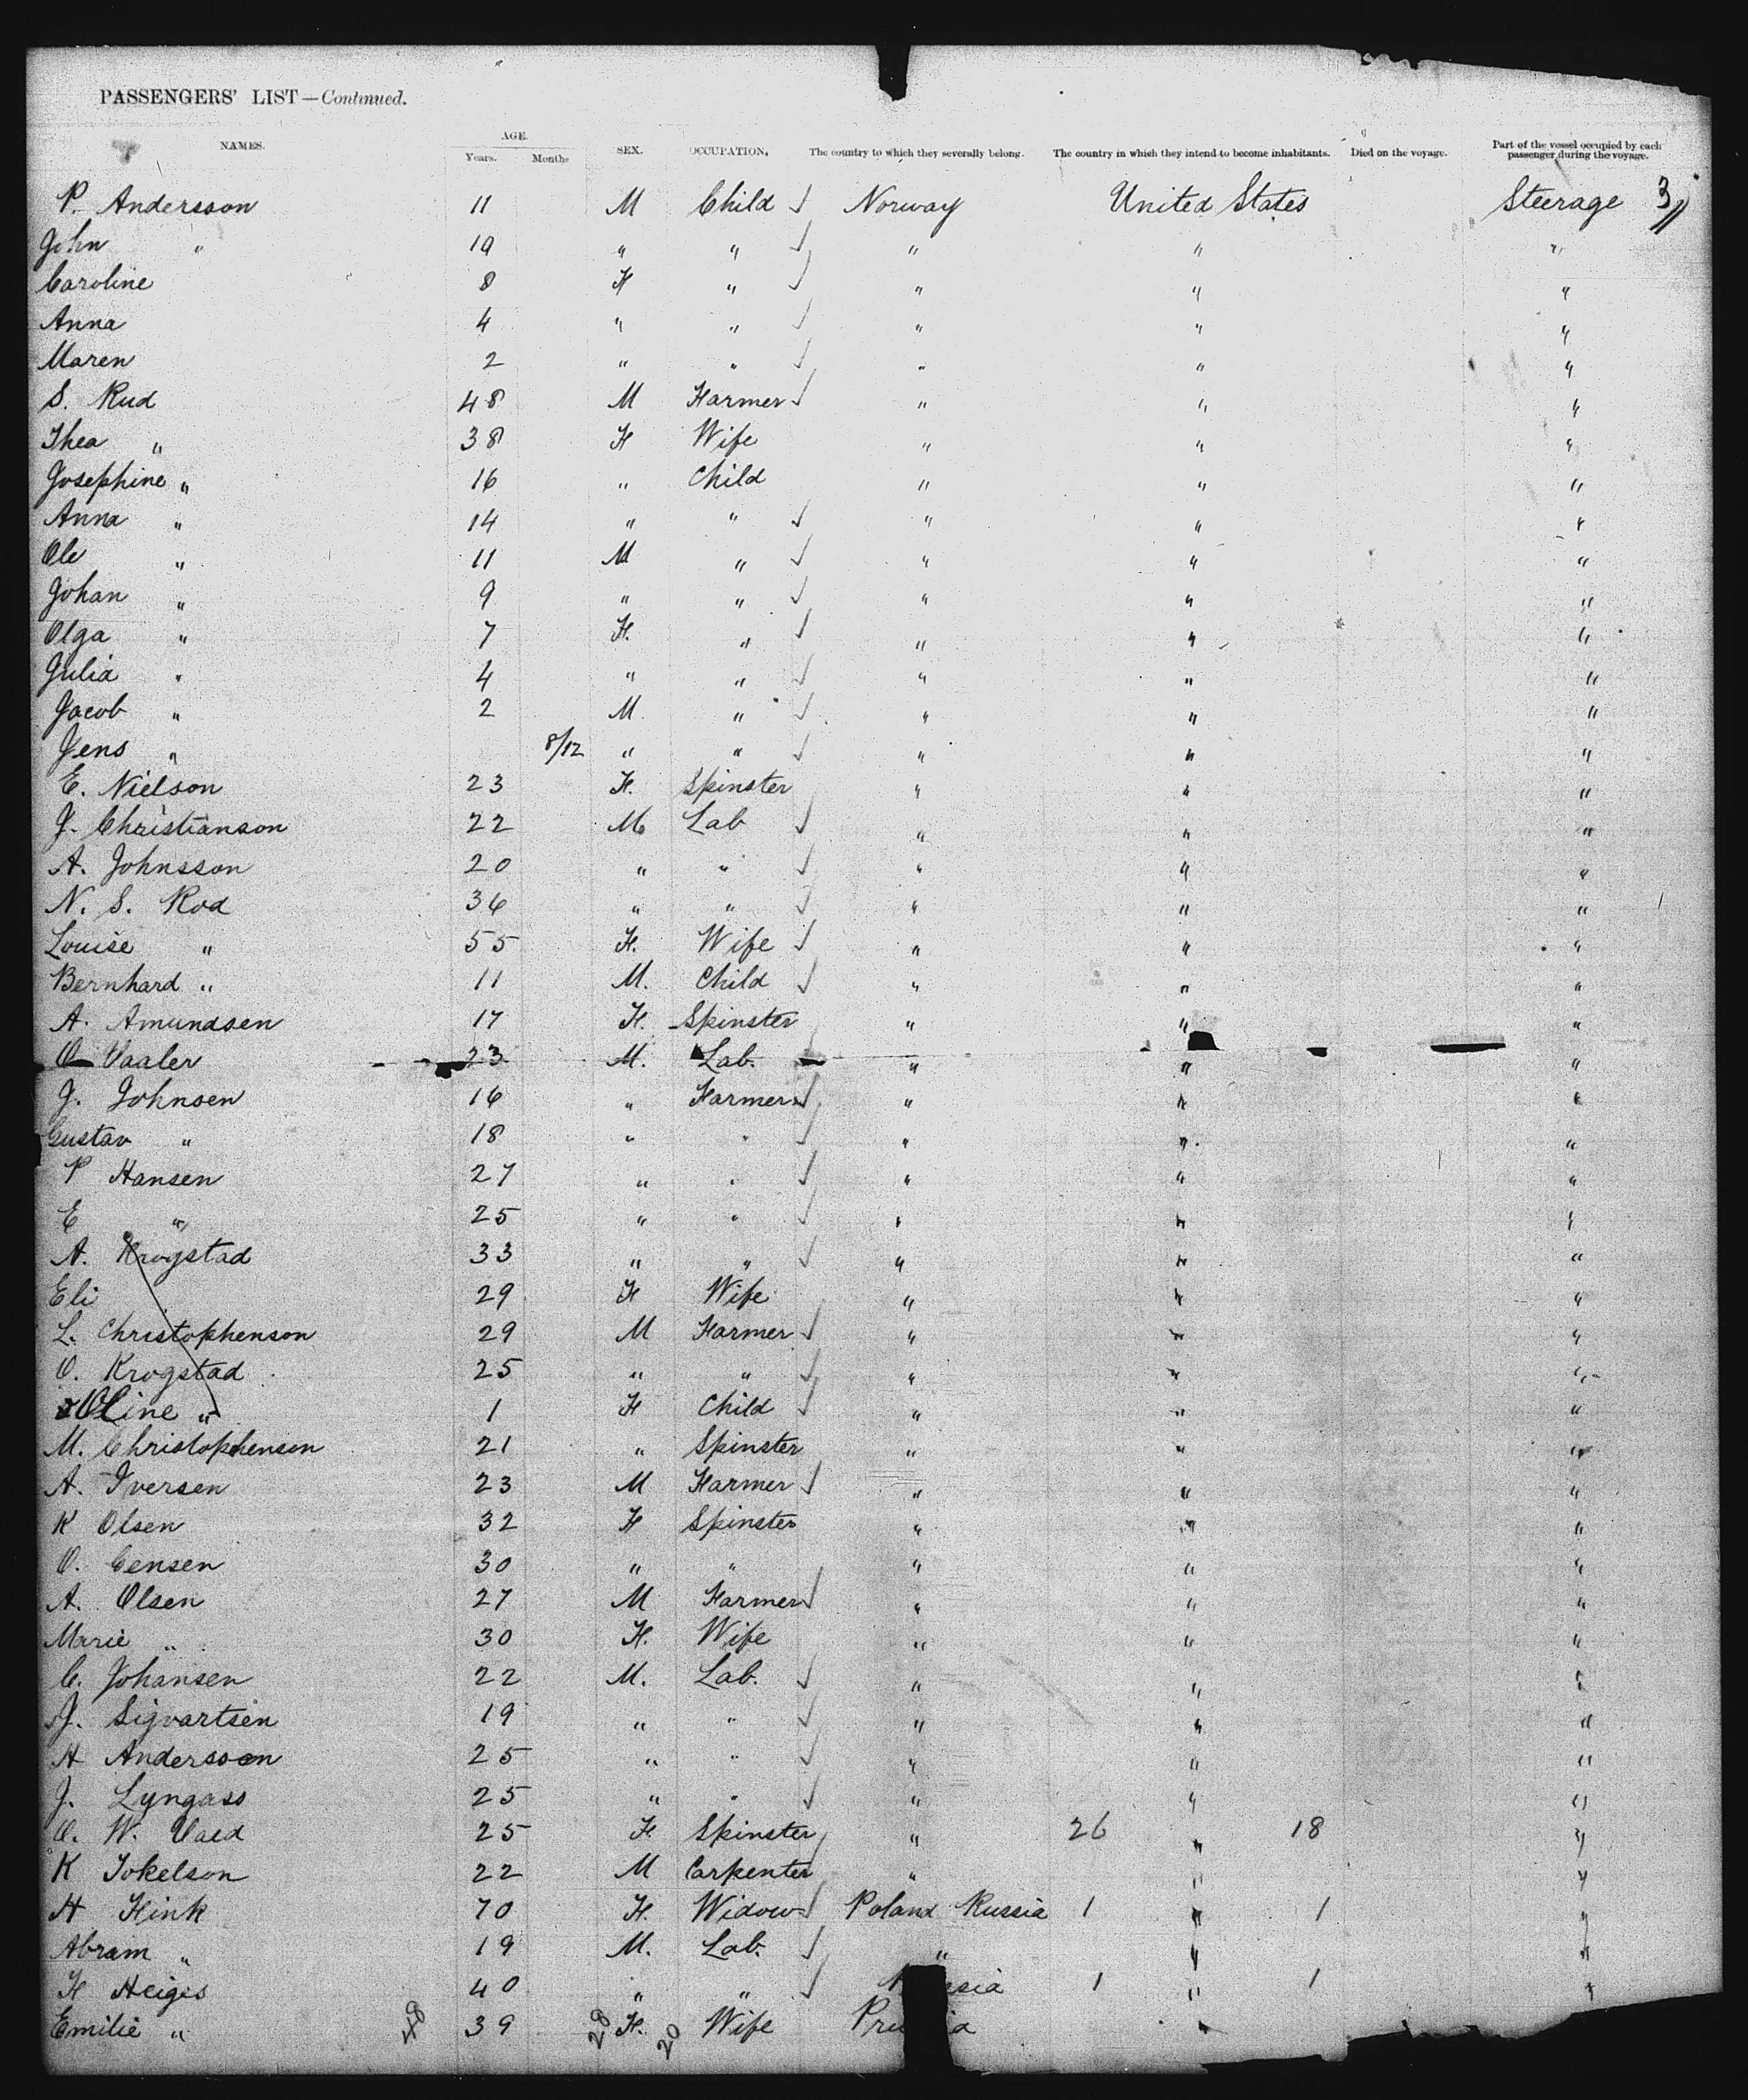 PASSENGERS' LIST—Continued.
NAMES. AGE. Years. Months SEX. OCCUPATION. The country to which they severally belong. The country in which they intend to become inhabitants. Died on the voyage. Part of the vessel occupied by each passenger during the voyage.
P. Andersson 11 M Child Norway United States Steerage 3
John " 10 " " " " "
Caroline 8 F " " " "
Anna 4 " " " " "
Maren 2 " " " " "
S. Rud 48 M Farmer " " "
Thea " 38 F Wife " " "
Josephine " 16 " Child " " "
Anna " 14 " " " " "
Ole " 11 M " " " "
Johan " 9 " " " " "
Olga " 7 F. " " " "
Julia " 4 " " " " "
Jacob " 2 M. " " " "
Jens " 8/12 " " " " "
E. Nielson 23 F. Spinster " " "
J. Christianson 22 M Lab " " "
A. Johnsson 20 " " " " "
N. S. Rod 36 " " " " "
Louise " 55 F. Wife " " "
Bernhard " 11 M. Child " " "
A. Amundsen 17 F. Spinster " " "
O Vaaler 23 M. Lab. " " "
J. Johnsen 16 " Farmer " " "
Gustav " 18 " " " " "
P Hansen 27 " " " " "
E " 25 " " " " "
A. Krogstad 33 " " " " "
Eli 29 F Wife " " "
L. Christophenson 29 M Farmer " " "
O. Krogstad 25 " " " " "
Oline " 1 F Child " " "
M. Christophensen 21 " Spinster " " "
A. Iversen 23 M Farmer " " "
K Olsen 32 F Spinster " " "
O. Censen 30 " " " " "
A. Olsen 27 M Farmer " " "
Marie " 30 F. Wife " " "
C. Johansen 22 M. Lab. " " "
J. Sigvartsen 19 " " " " "
A Anderson 25 " " " " "
J. Lyngass 25 " " " " "
O. W. 25 F. Spinster " 26 " 18 "
K Tokelson 22 M Carpenter " " "
H Fink 70 F. Widow Poland Russia 1 " 1 "
Abram " 19 M. Lab. " " "
F Heiges 40 " " 1 " 1 "
Emilie " 48 39 28 F. 20 Wife "